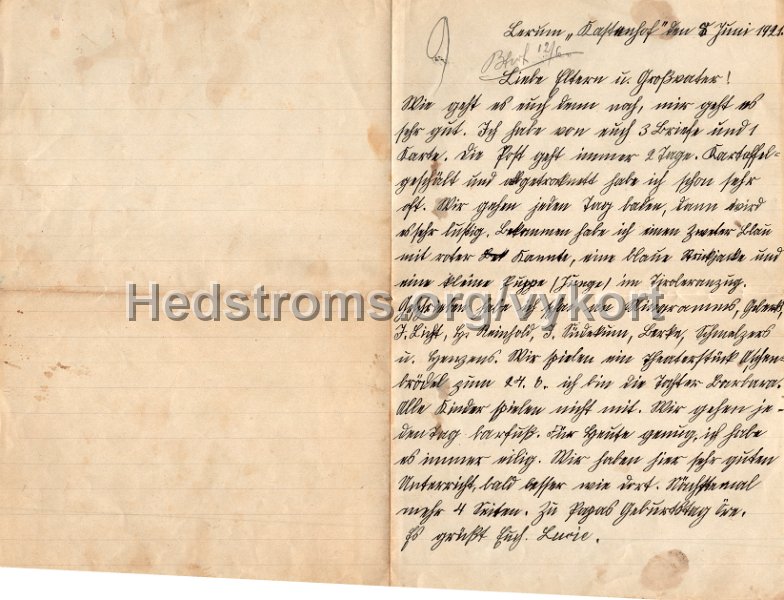 Lerum „Kastenhof" den 8 Juni 1921.
12/6.
Liebe Eltern u. Großvater!
Wie geht es euch denn noch, mir geht es
sehr gut. Ich habe von euch 3 Briefe und 1
Karte. Die Post geht immer 2 Tage. Kartoffel-
geschält und abgetrocknett habe ich schon sehr
oft. Wir gehen jeden Tag baden, dann wird
es sehr lustig. Bekommen habe ich einen Zweter blau
mit roter Kannte, eine blaue Strickjacke und
eine kleine Puppe (Junge) im Tiroleranzug.
Geschrieben habe ich schon
J. Licht, H. Reinhold, J. Südekum, Schmelzers
u. Henzens. Wir spielen ein Theaterstück Aschen-
brödel zum 24. 6. ich bin die Tochter Barbara.
Alle Kinder spielen nicht mit. Wir gehen je-
den Tag barfuß. Für Heute genug, ich habe
es immer eilig. Wir haben hier sehr guten
Unterricht, bald besser wie dort. Nächstemal
mehr 4 Seiten. Zu Papas Geburtstag
Es grüßt Euch. Lucie.
Hedstroms.org/vykort